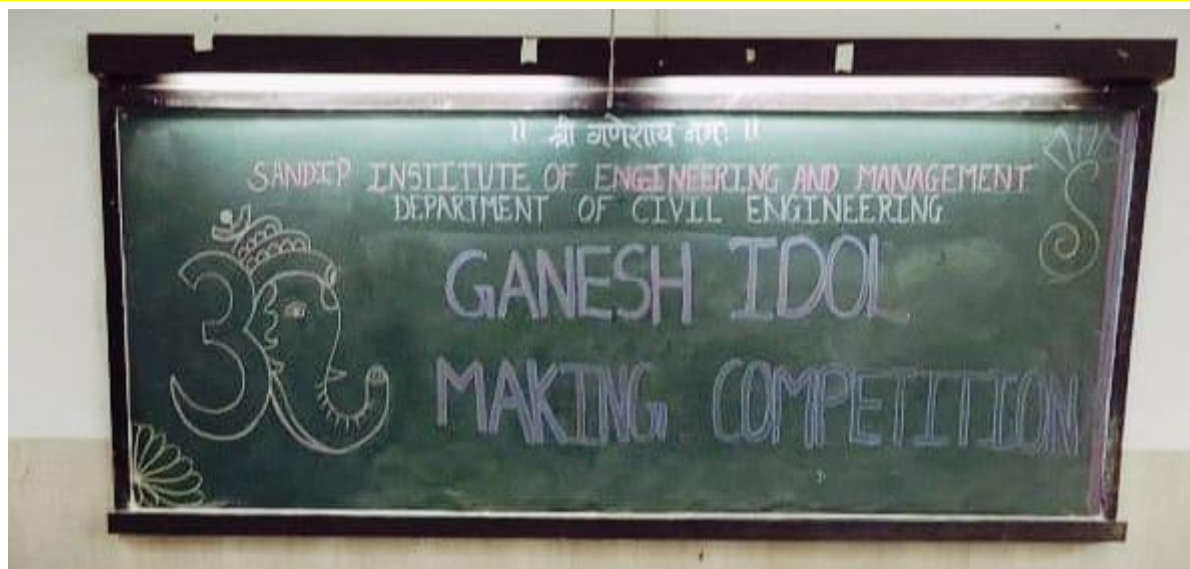 ॥ श्री गणेशाय नमः ॥
SANDIP INSTITUTE OF ENGINEERING AND MANAGEMENT
DEPARTMENT OF CIVIL ENGINEERING
GANESH IDOL
MAKING COMPETITION